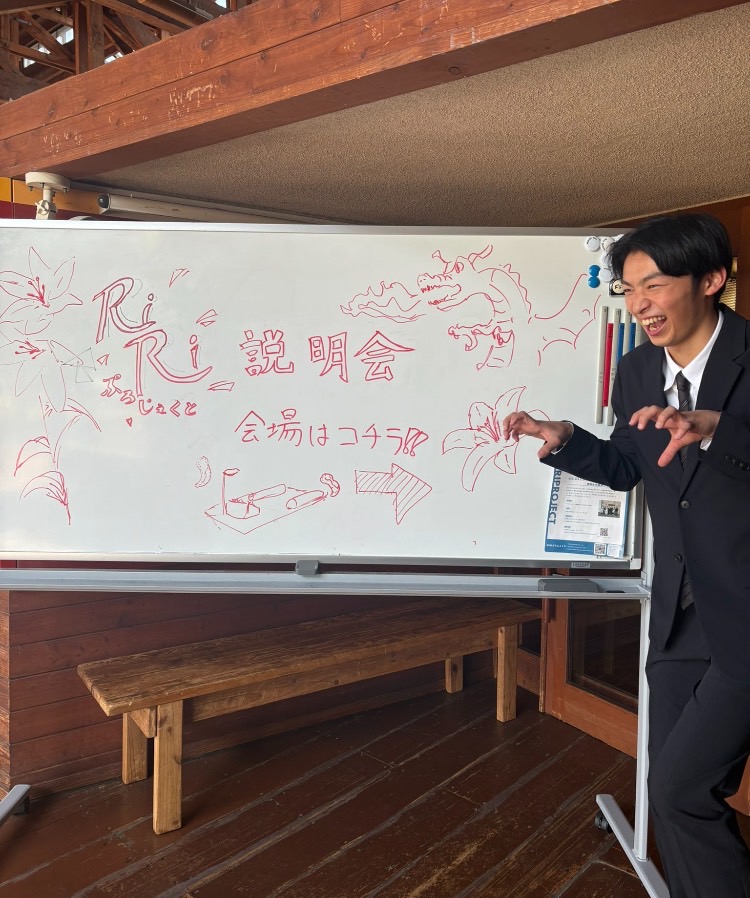 RiRi
ぷろじぇくと
説明会
会場はコチラ!!
RIPROJECT